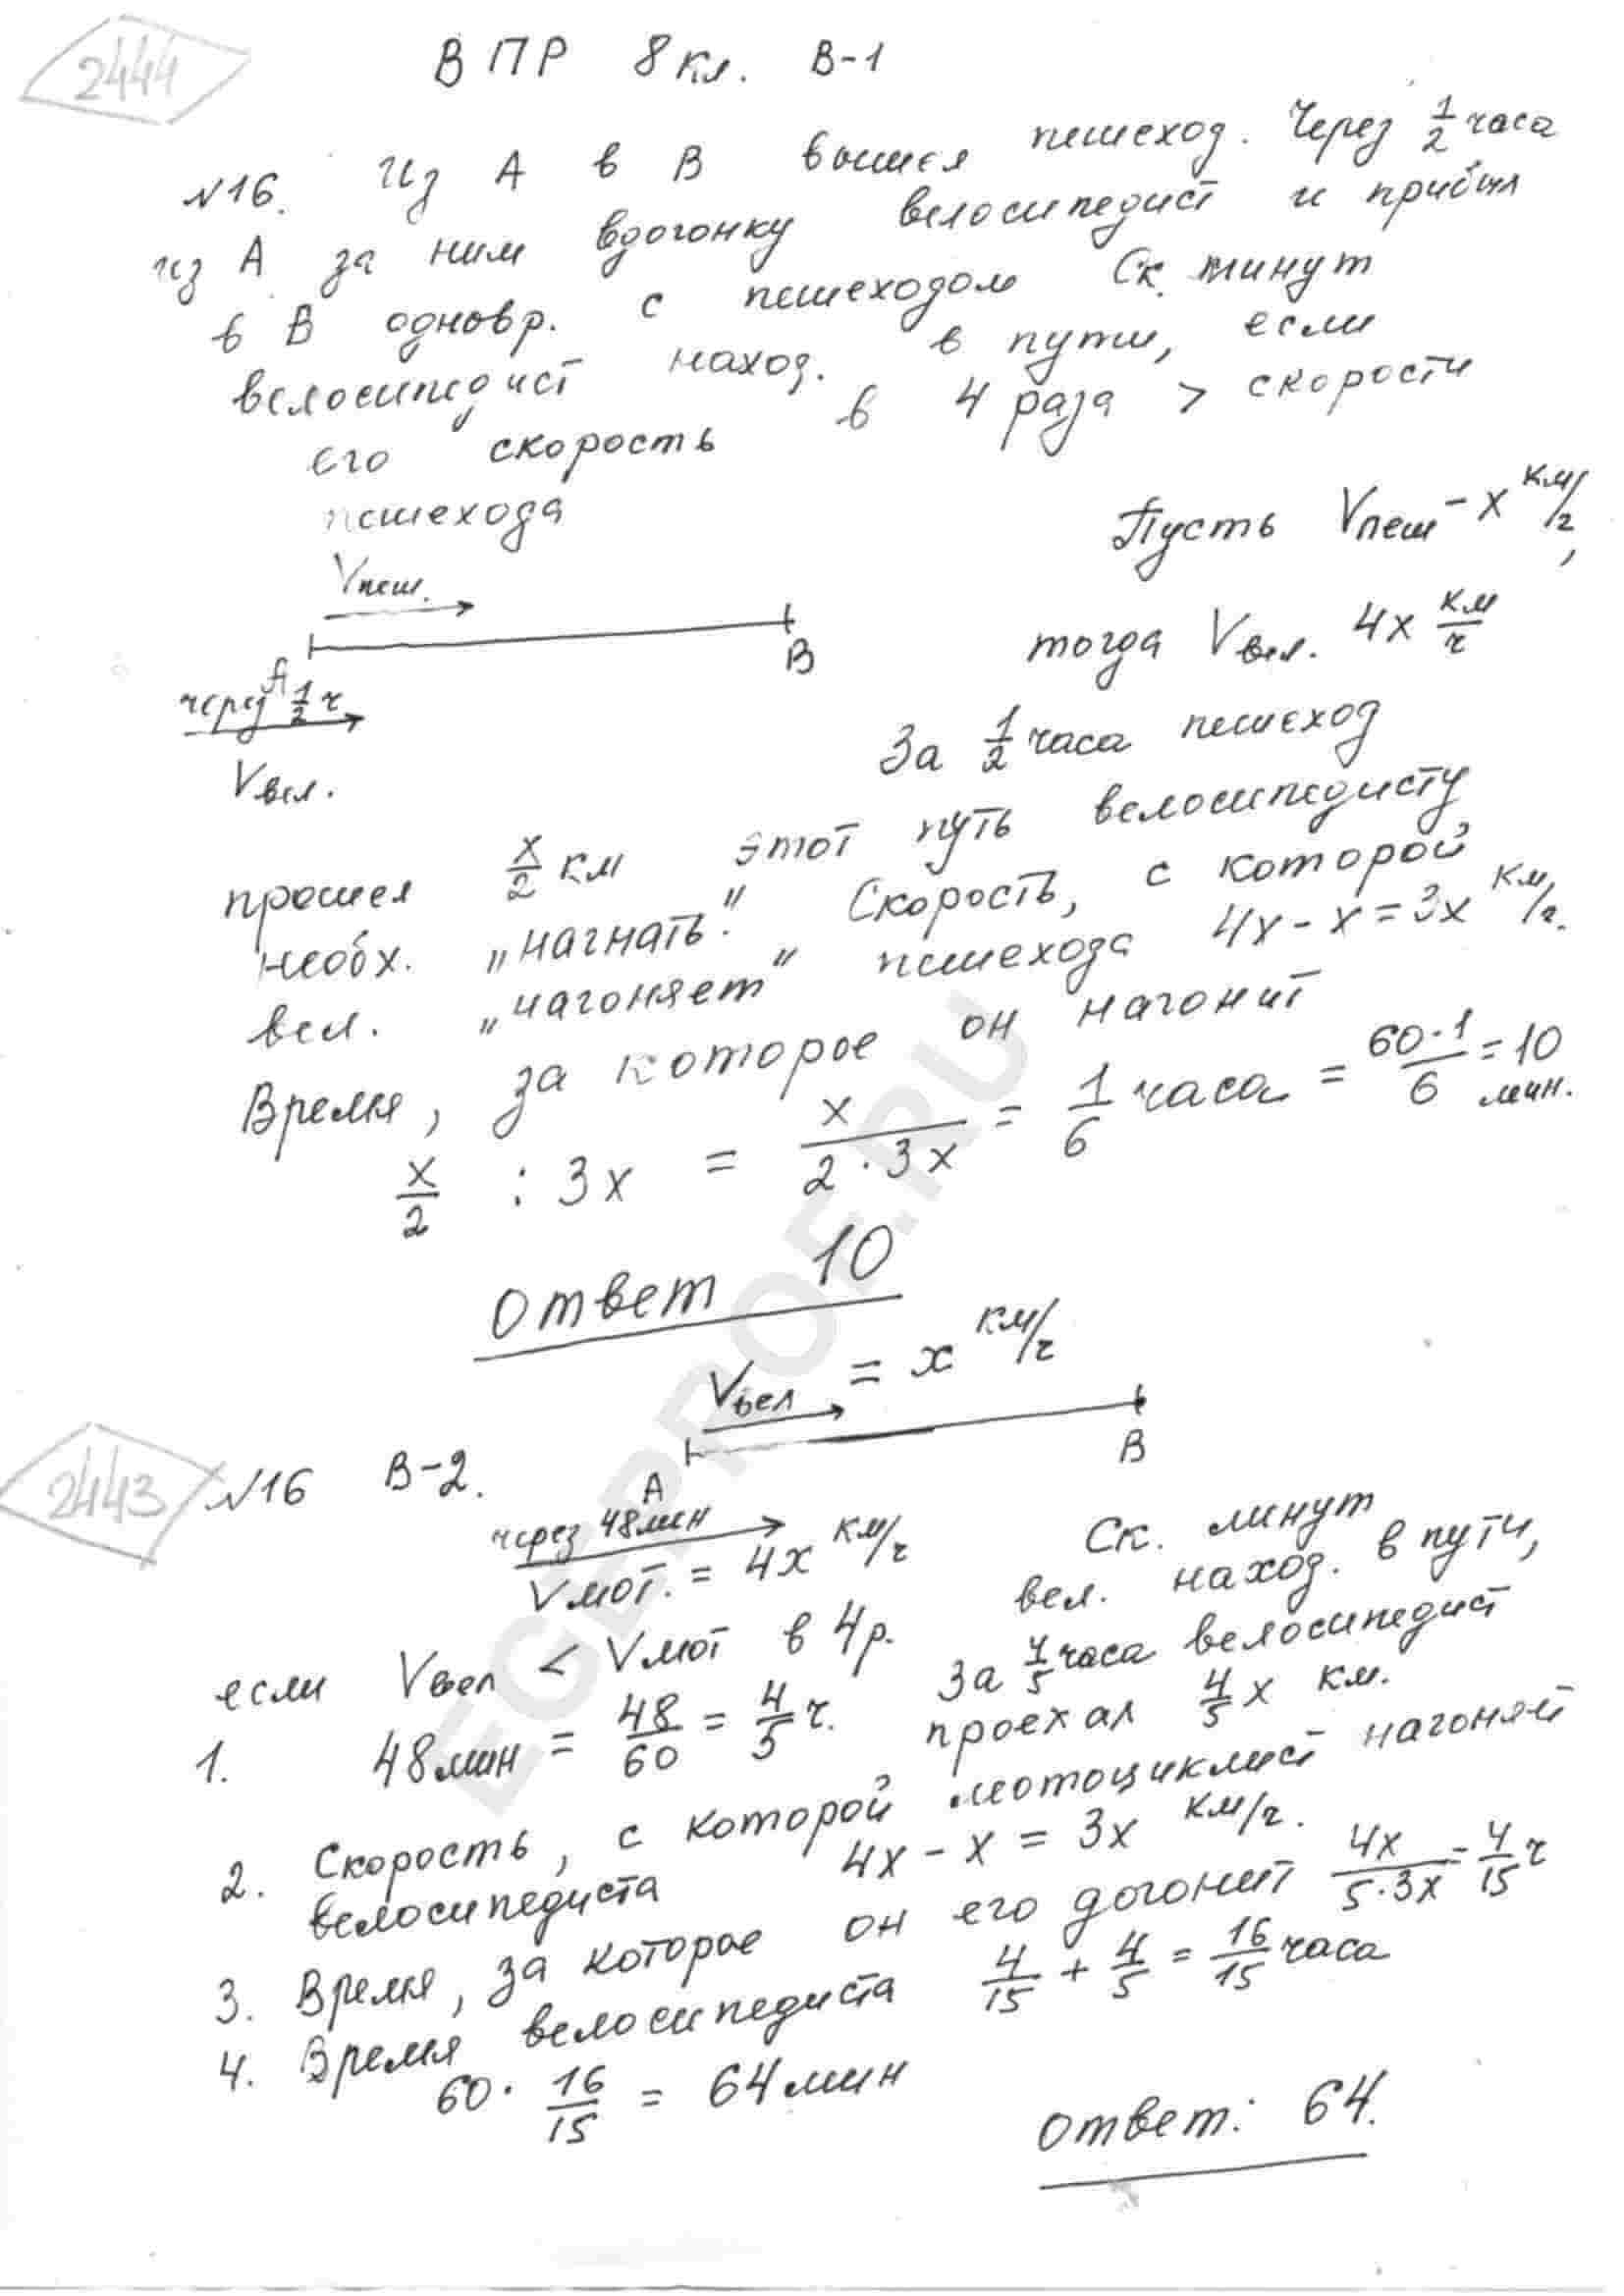 2444
ВПР 8 кл. В-1
№16. Из А в В вышел пешеход. Через 1/2 часа
из А за ним вдогонку велосипедист и прибыл
в В одновр. с пешеходом Ск. минут
велосипедист наход. в пути, если
его скорость в 4 раза > скорости
пешехода
Vпеш.
Пусть Vпеш - x км/ч,
А В
тогда Vвел. 4x км/ч
через 1/2 ч
Vвел.
За 1/2 часа пешеход
прошел x/2 км этот путь велосипедисту
необх. „нагнать." Скорость, с которой
вел. „нагоняет" пешехода 4x - x = 3x км/ч.
Время, за которое он нагонит
x/2 : 3x = x/(2·3x) = 1/6 часа = 60·1/6 = 10 мин.
Ответ 10
Vвел = x км/ч
А В
2443
№16 В-2.
через 48 мин
Vмот. = 4x км/ч
Ск. минут
вел. наход. в пути,
если Vвел < Vмот в 4 р.
1. 48 мин = 48/60 = 4/5 ч. За 4/5 часа велосипедист
проехал 4/5 x км.
2. Скорость, с которой мотоциклист нагоняет
велосипедиста 4x - x = 3x км/ч.
3. Время, за которое он его догонит 4x/(5·3x) = 4/15 ч
4. Время велосипедиста 4/15 + 4/5 = 16/15 часа
60 · 16/15 = 64 мин
Ответ: 64.
EGEPROF.RU